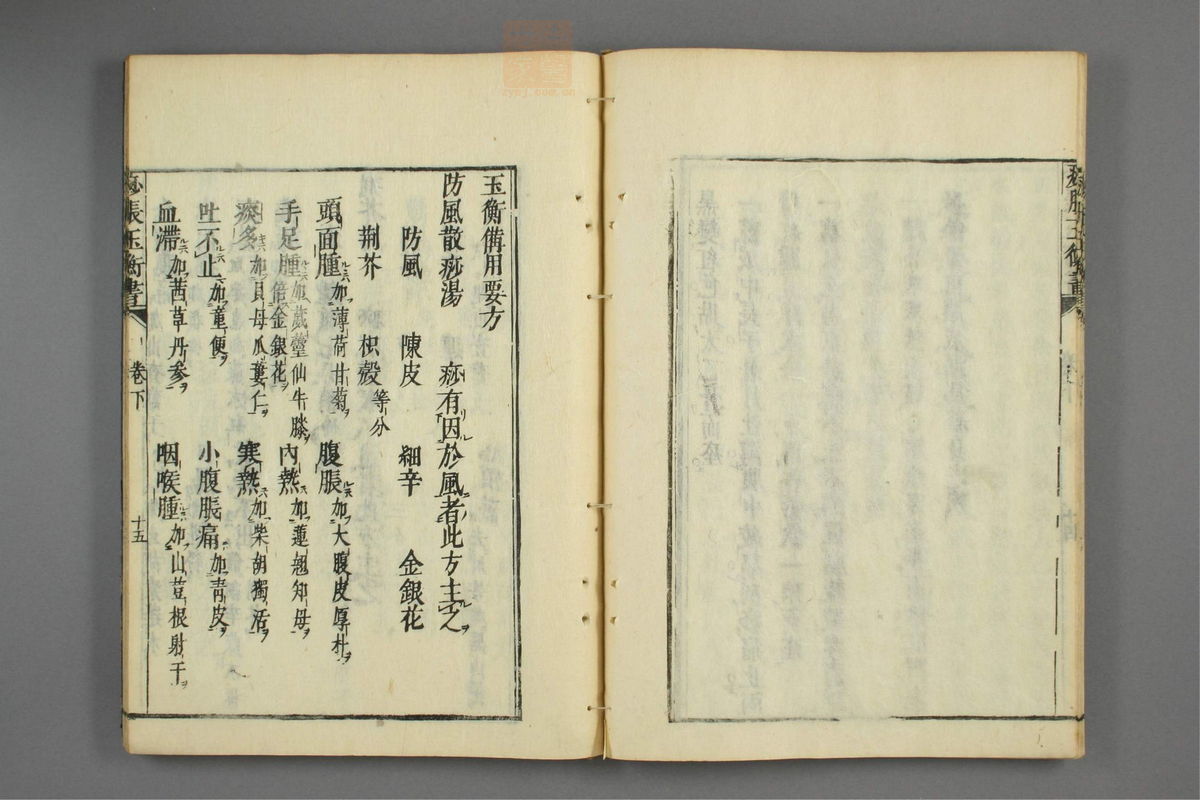 玉衡備用要方
防風散痧湯　痧有因於風者此方主之
防風　陳皮　細辛　金銀花
荆芥　枳殻等分
頭面腫加薄荷甘菊　腹脹加大腹皮厚朴
手足腫加葳靈仙牛膝倍金銀花　内熱加連翹知母
痰多加貝母瓜蔞仁　寒熱加柴胡獨活
吐不止加童便　小腹脹痛加青皮
血滯加茜草丹參　咽喉腫加山荳根射干
痧脹玉衡書　卷下　十五